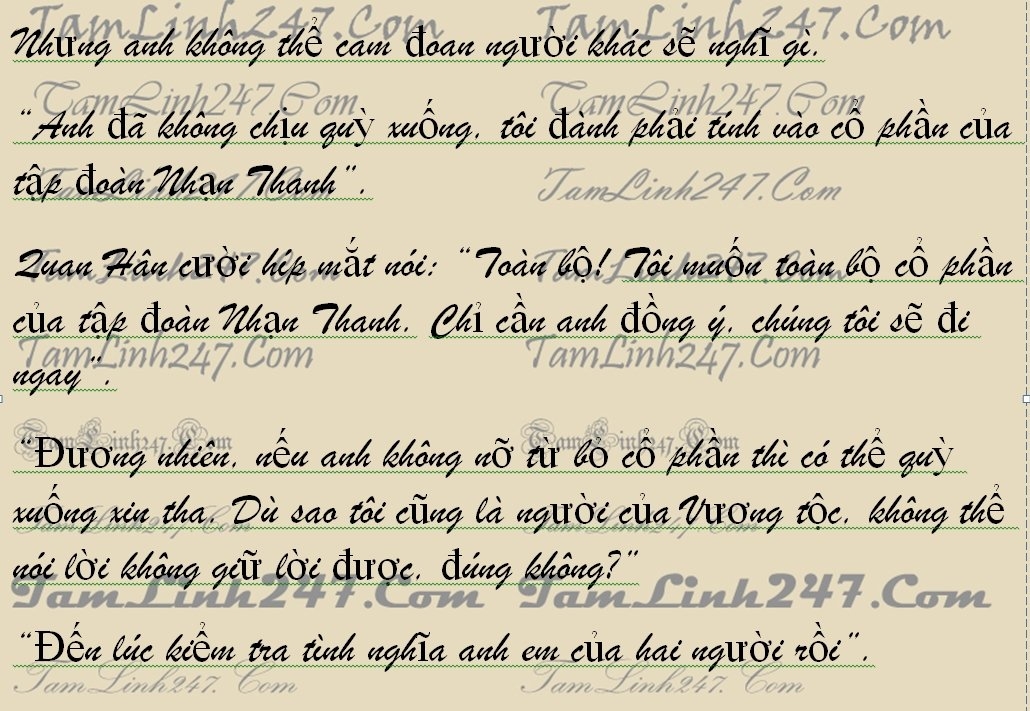 TamLinh247.Com TamLinh247.Com
Nhưng anh không thể cam đoan người khác sẽ nghĩ gì.
TamLinh247.Com TamLinh247.Com
“Anh đã không chịu quỳ xuống, tôi đành phải tính vào cổ phần của
tập đoàn Nhạn Thanh”.
TamLinh247.Com TamLinh247.Com
Quan Hân cười híp mắt nói: “Toàn bộ! Tôi muốn toàn bộ cổ phần
TamLinh247.Com TamLinh247.Com
của tập đoàn Nhạn Thanh. Chỉ cần anh đồng ý, chúng tôi sẽ đi
TamLinh247.Com TamLinh247.Com
ngay”.
TamLinh247.Com TamLinh247.Com
“Đương nhiên, nếu anh không nỡ từ bỏ cổ phần thì có thể quỳ
xuống xin tha. Dù sao tôi cũng là người của Vương tộc, không thể
TamLinh247.Com TamLinh247.Com
nói lời không giữ lời được, đúng không?”
TamLinh247.Com TamLinh247.Com
“Đến lúc kiểm tra tình nghĩa anh em của hai người rồi”.
TamLinh247.Com TamLinh247.Com